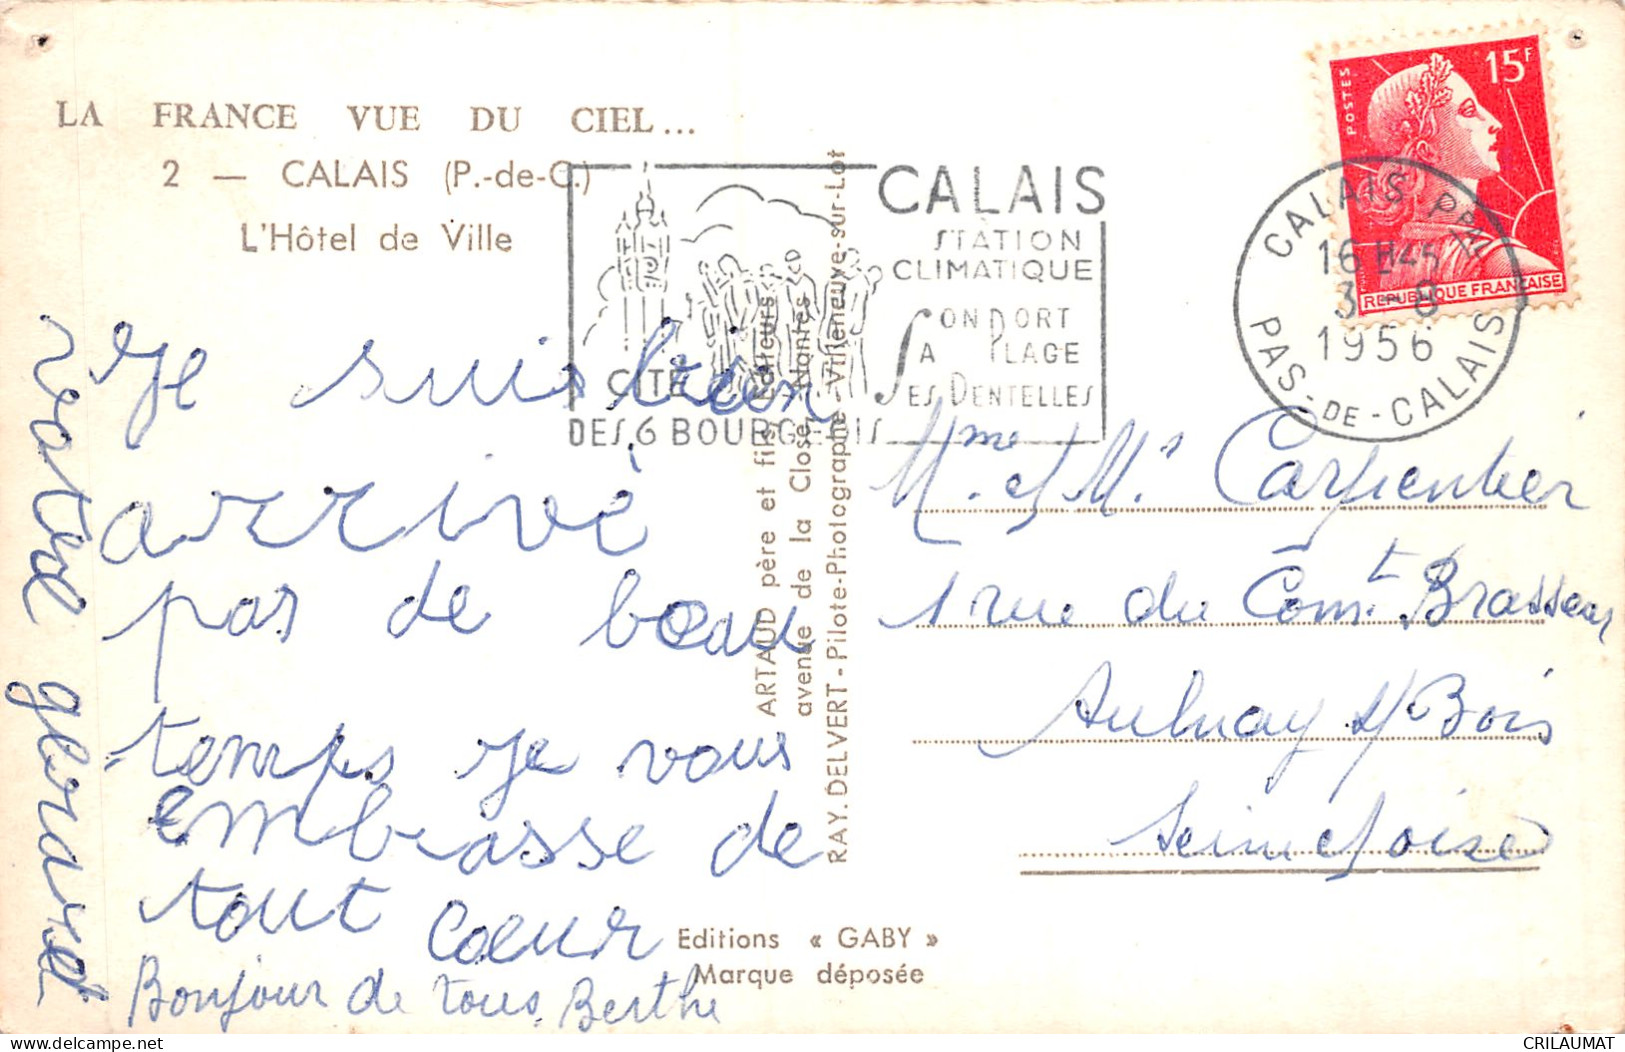 LA FRANCE VUE DU CIEL...
2 — CALAIS (P.-de-C.)
L'Hôtel de Ville
CALAIS
STATION
CLIMATIQUE
SON PORT
SA PLAGE
SES DENTELLES
CITÉ
DES 6 BOURGEOIS
CALAIS PPAL
16 H45
3 - 8
1956
PAS-DE-CALAIS
POSTES
15F
REPUBLIQUE FRANÇAISE
Je suis bien
arrivé
pas de beau
temps je vous
embrasse de
tout cœur
Bonjour de tous. Berthe
votre gerard
ARTAUD père et fils Editeurs
avenue de la Close, Nantes
RAY. DELVERT - Pilote-Photographe - Villeneuve-sur-Lot
Mme et Mr Carpentier
1 rue du Comt Brasseur
Aulnay s/ Bois
Seine et Oise
Editions « GABY »
Marque déposée
CRILAUMAT